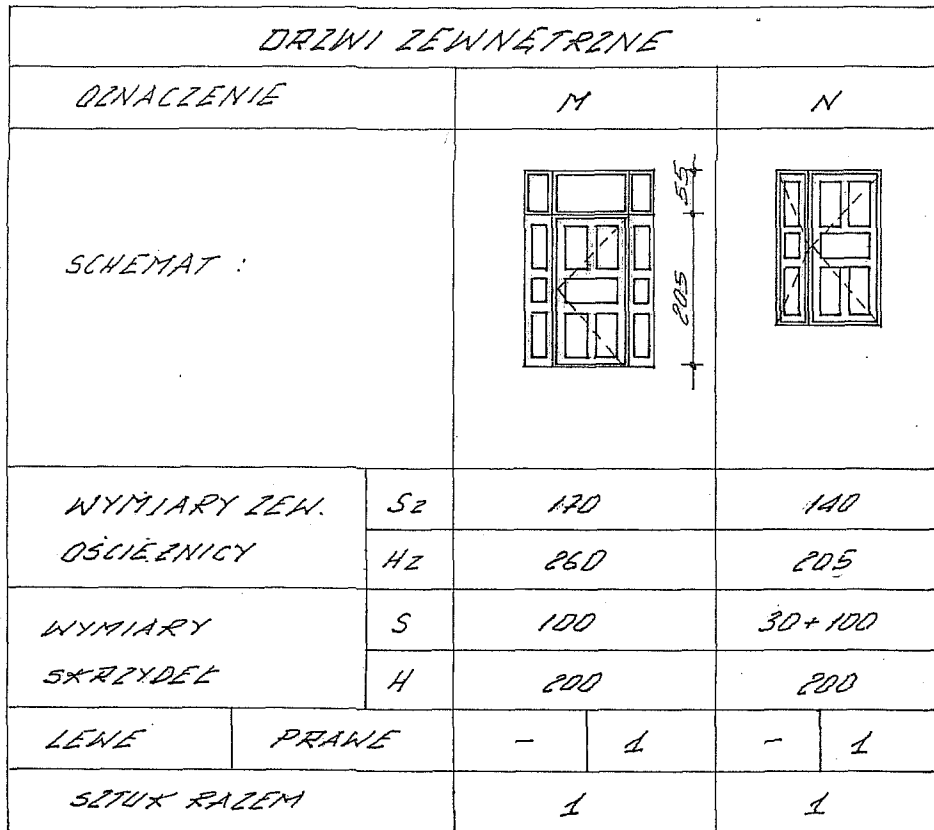 DRZWI ZEWNĘTRZNE
OZNACZENIE M N
SCHEMAT :
55
205
WYMIARY ZEW. OŚCIEŻNICY
Sz 170 140
Hz 260 205
WYMIARY SKRZYDEŁ
S 100 30+100
H 200 200
LEWE PRAWE - 1 - 1
SZTUK RAZEM 1 1